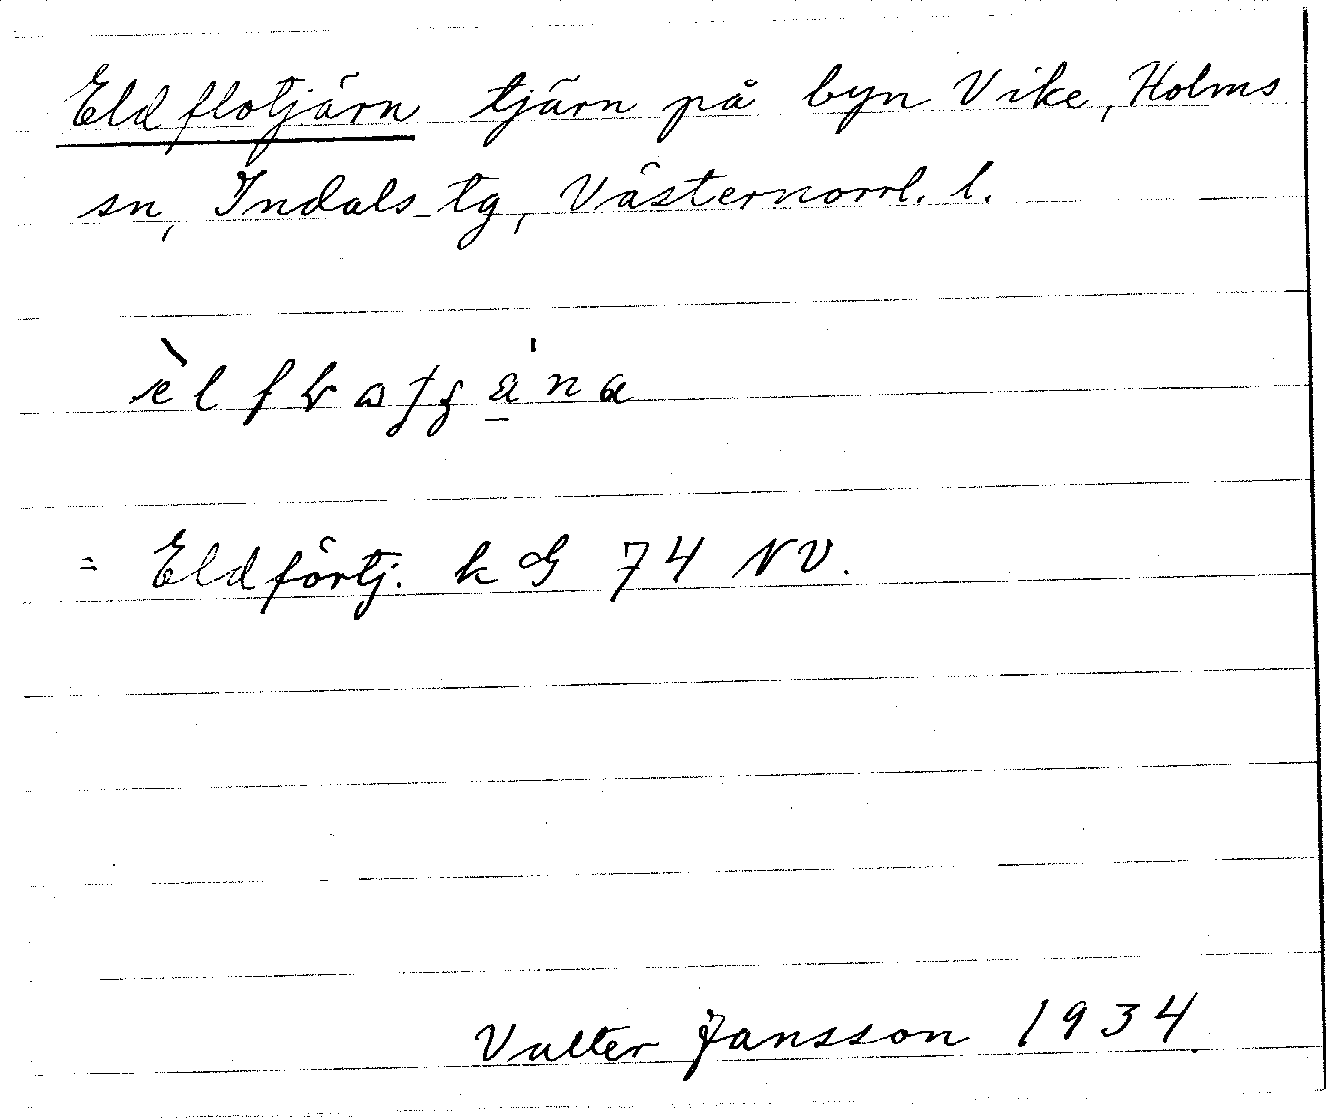 Eldflotjärn tjärn på byn Vike, Holms
sn, Indals tg, Västernorrl. l.
= Eldförtj. k G 74 NV.
Valter Jansson 1934.